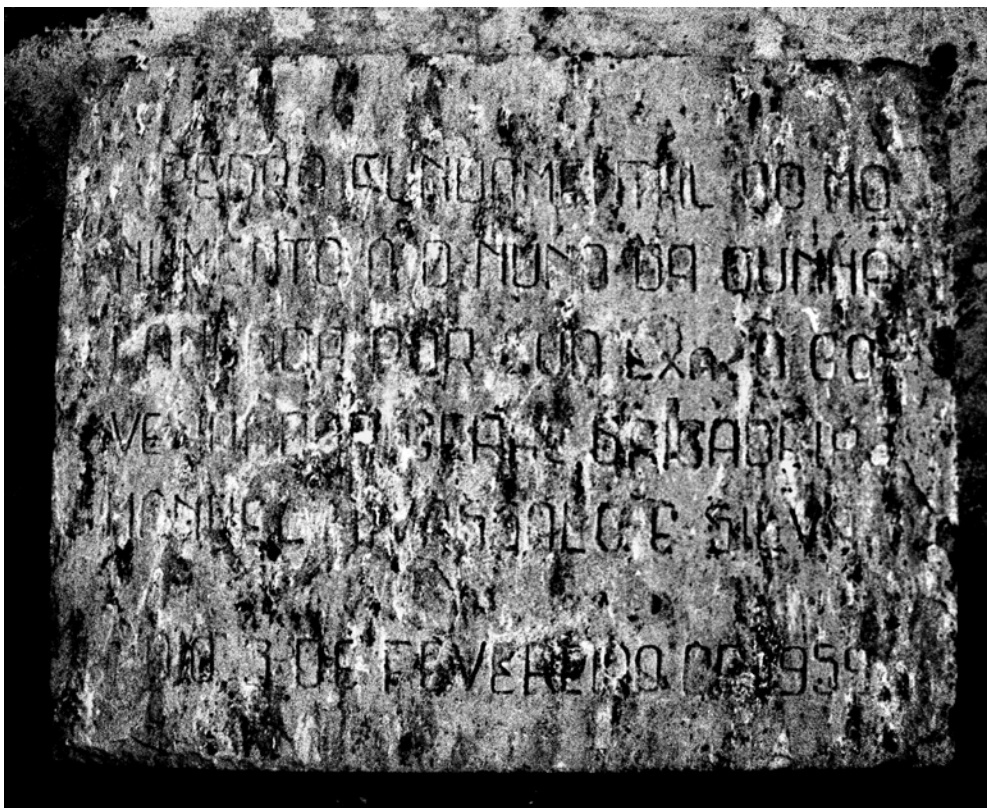 PEDRA FUNDAMENTAL DO MO
NUMENTO A D. NUNO DA CUNHA
LANÇADA POR SUA EXA. O GO
VERNADOR GERAL BRIGADEIRO
MANUEL A. VASSALO E SILVA
AO 3 DE FEVEREIRO DE 1959